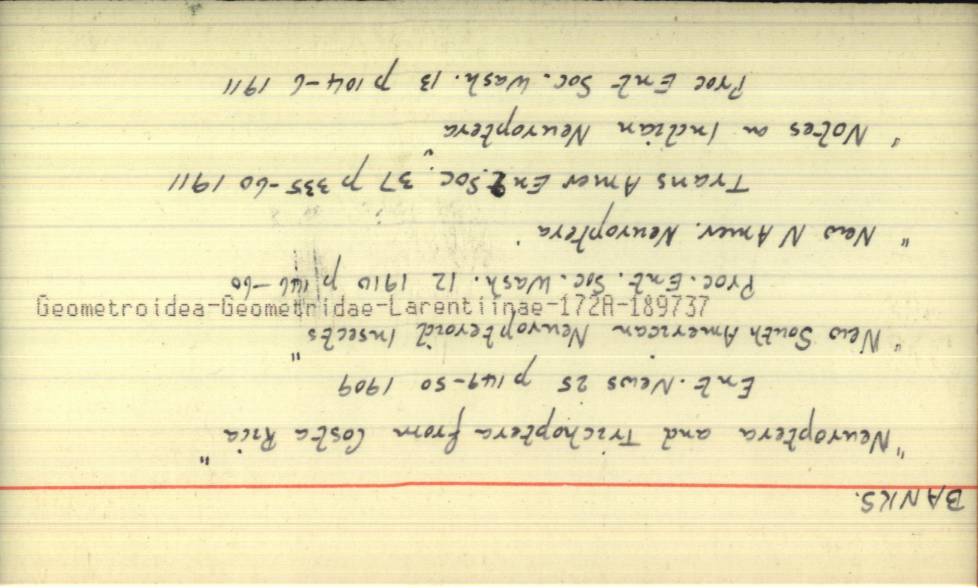 BANKS.
"Neuroptera and Trichoptera from Costa Rica"
Ent. News 25 p 149-50 1909
"New South American Neuropteroid Insects"
Proc. Ent. Soc. Wash. 12 1910 p 146-60
"New N Amer. Neuroptera
Trans Amer Ent Soc. 37 p 335-60 1911
"Notes on Indian Neuroptera
Proc Ent Soc. Wash. 13 p 104-6 1911
Geometroidea-Geometridae-Larentiinae-172A-189737